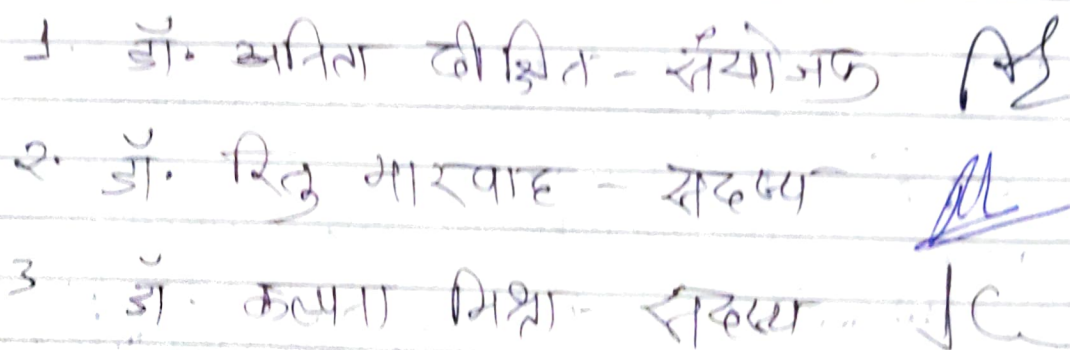 1. डॉ. अनिता दीक्षित - संयोजक
2. डॉ. रितु मारवाह - सदस्य
3 डॉ. कल्पना मिश्रा - सदस्य